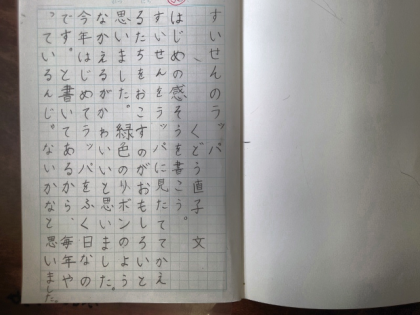 すいせんのラッパ
くどう直子 文
はじめの感そうを書こう。
すいせんをラッパに見たててかえ
るたちをおこすのがおもしろいと
思いました。緑色のリボンのよう
なかえるがかわいいと思いました。
今年はじめてラッパをふく日なの
です。と書いてあるから、毎年や
っているんじゃないかなと思いました。